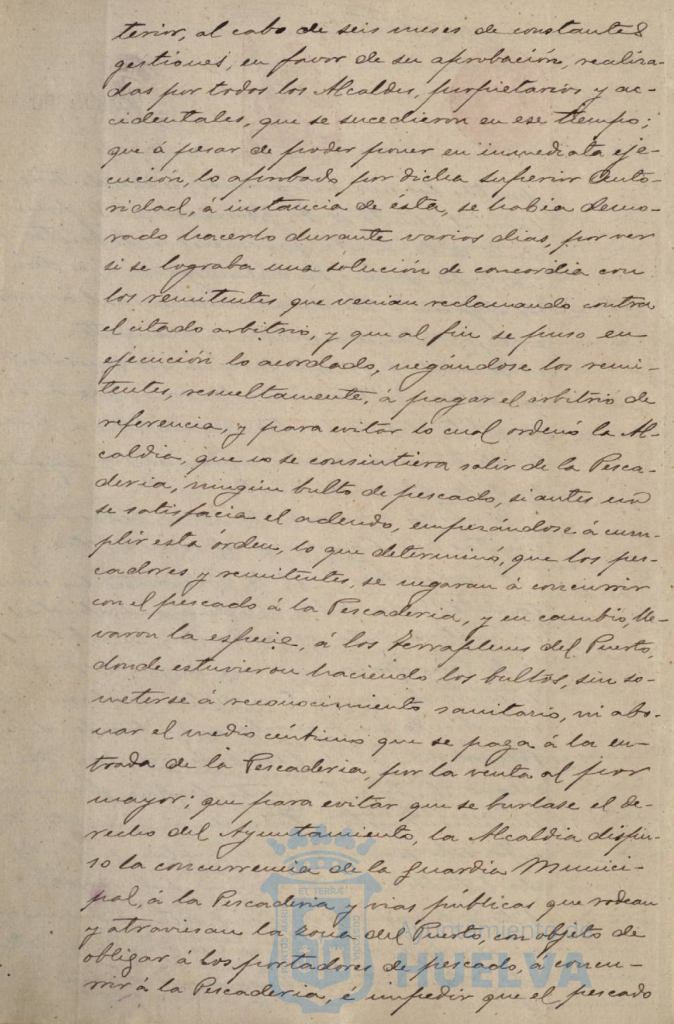 terior, al cabo de seis meses de constantes
gestiones, en favor de su aprobación, realiza-
das por todos los Alcaldes, propietarios y ac-
cidentales, que se sucedieron en ese tiempo;
que á pesar de poder poner en inmediata eje-
cución, lo aprobado por dicha superior Auto-
ridad, á instancia de ésta, se habia demo-
rado hacerlo durante varios dias, por ver
si se lograba una solución de concordia con
los remitentes que venian reclamando contra
el citado arbitrio, y que al fin se puso en
ejecución lo acordado, negándose los remi-
tentes, resueltamente, á pagar el arbitrio de
referencia, y para evitar lo cual ordenó la Al-
caldia, que no se consintiera salir de la Pesca-
deria, ningún bulto de pescado, si antes no
se satisfacia el adeudo, empezándose á cum-
plir esta orden, lo que determinó, que los pes-
cadores y remitentes, se negaran á concurrir
con el pescado á la Pescaderia, y en cambio, lle-
varon la especie, á los terraplenes del Puerto,
donde estuvieron haciendo los bultos, sin so-
meterse á reconocimiento sanitario, ni abo-
nar el medio céntimo que se paga á la en-
trada de la Pescaderia, por la venta al por
mayor; que para evitar que se burlase el de-
recho del Ayuntamiento, la Alcaldia dispu-
so la concurrencia de la guardia Munici-
pal, á la Pescaderia y vias públicas que rodean
y atraviesan la zona del Puerto, con objeto de
obligar á los portadores de pescado, á concu-
rrir á la Pescaderia, é impedir que el pescado
Ayuntamiento de
HUELVA